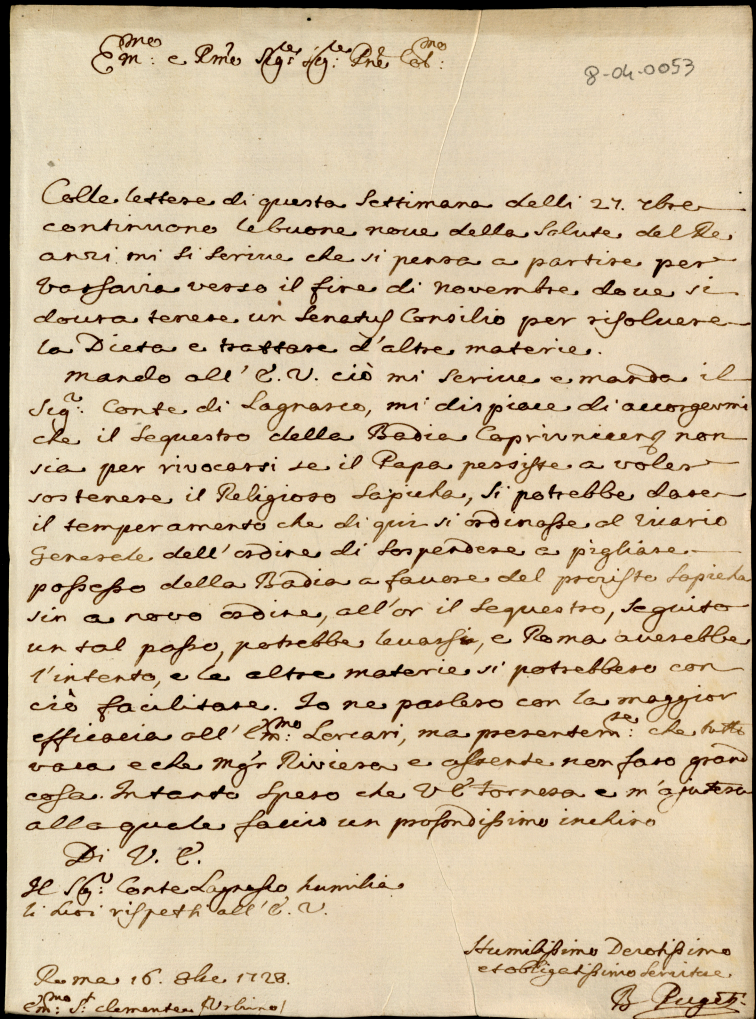 Em:mo e Rmo Sigre Sigre Pne Col:mo
8-04-0053
Colle lettere di questa Settimana delli 27. 7bre
continuono le buone nove della Salute del Re
anzi mi si scrive che si pensa a partire per
Varsavia verso il fine di novembre dove si
dovra tenere un Senatus Consilio per risolvere
la Dieta e trattare d'altre materie.
mando all' E. V. ciò mi scrive e manda il
Sigr. Conte di Lagnasco, mi dispiace di accorgermi
che il sequestro della Badia Coprivnicens non
sia per rivocarsi se il Papa persiste a voler
sostenere il Religioso Sapieha, si potrebbe dare
il temperamento che di qui si ordinasse al Vicario
Generale dell'ordine di sospendere a pigliare
possesso della Badia a favore del provisto Sapieha
sin a novo ordine, all'or il sequestro, seguito
un tal passo, potrebbe levarsi, e Roma averebbe
l'intento, e le altre materie si potrebbero con
ciò facilitare. Io ne parlero con la maggior
efficacia all' Em:mo Lercari, ma presentem:te che tutto
vaca e che Mgr Riviera e assente non faro grand
cosa. Intanto spero che V E tornera e m'ajutera
alla quale faccio un profondissimo inchino
Di V. E.
Il Sigr Conte Lagnasco humilia
li suoi rispetti all' E. V.
Humilissimo Devotissimo
et obligatissimo Servitore
B Puget:
Roma 16. 8bre 1728.
Em:mo St Clemente (Urbino)